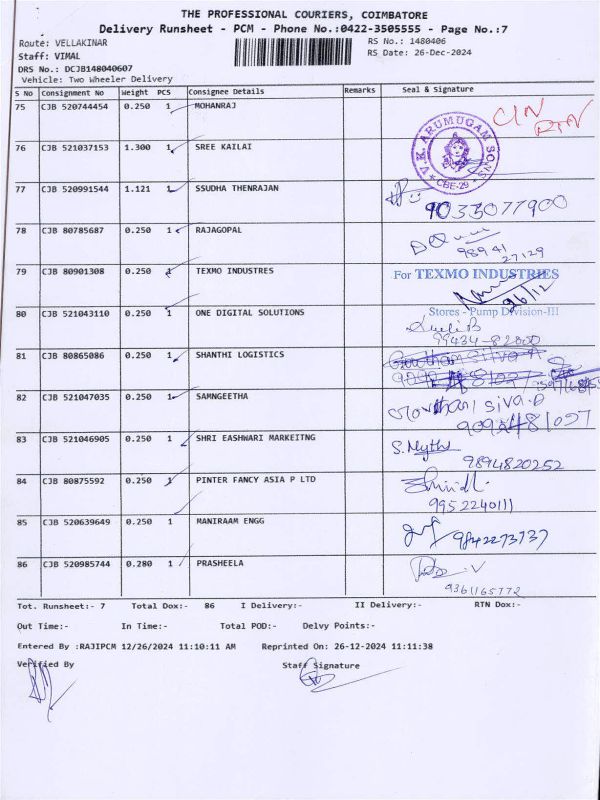 THE PROFESSIONAL COURIERS, COIMBATORE
Delivery Runsheet - PCM - Phone No.:0422-3505555 - Page No.:7
Route: VELLAKINAR RS No.: 1480406
Staff: VIMAL RS Date: 26-Dec-2024
DRS No.: DCJB148040607
Vehicle: Two Wheeler Delivery
S No Consignment No Weight PCS Consignee Details Remarks Seal & Signature
75 CJB 520744454 0.250 1 MOHANRAJ
RTN
76 CJB 521037153 1.300 1 SREE KAILAI
V.K. ARUMUGAM SONS
CBE-29
77 CJB 520991544 1.121 1 SSUDHA THENRAJAN
9033077900
78 CJB 80785687 0.250 1 RAJAGOPAL
98941
27129
79 CJB 80901308 0.250 1 TEXMO INDUSTRES
For TEXMO INDUSTRIES
26/12
Stores - Pump Division-III
80 CJB 521043110 0.250 1 ONE DIGITAL SOLUTIONS
99434-82000
81 CJB 80865086 0.250 1 SHANTHI LOGISTICS
82 CJB 521047035 0.250 1 SAMNGEETHA
Siva.P
83 CJB 521046905 0.250 1 SHRI EASHWARI MARKEITNG
9894820252
84 CJB 80875592 0.250 1 PINTER FANCY ASIA P LTD
9952240111
85 CJB 520639649 0.250 1 MANIRAAM ENGG
9842273737
86 CJB 520985744 0.280 1 PRASHEELA
9361165772
Tot. Runsheet:- 7 Total Dox:- 86 I Delivery:- II Delivery:- RTN Dox:-
Out Time:- In Time:- Total POD:- Delvy Points:-
Entered By :RAJIPCM 12/26/2024 11:10:11 AM Reprinted On: 26-12-2024 11:11:38
Verified By Staff Signature